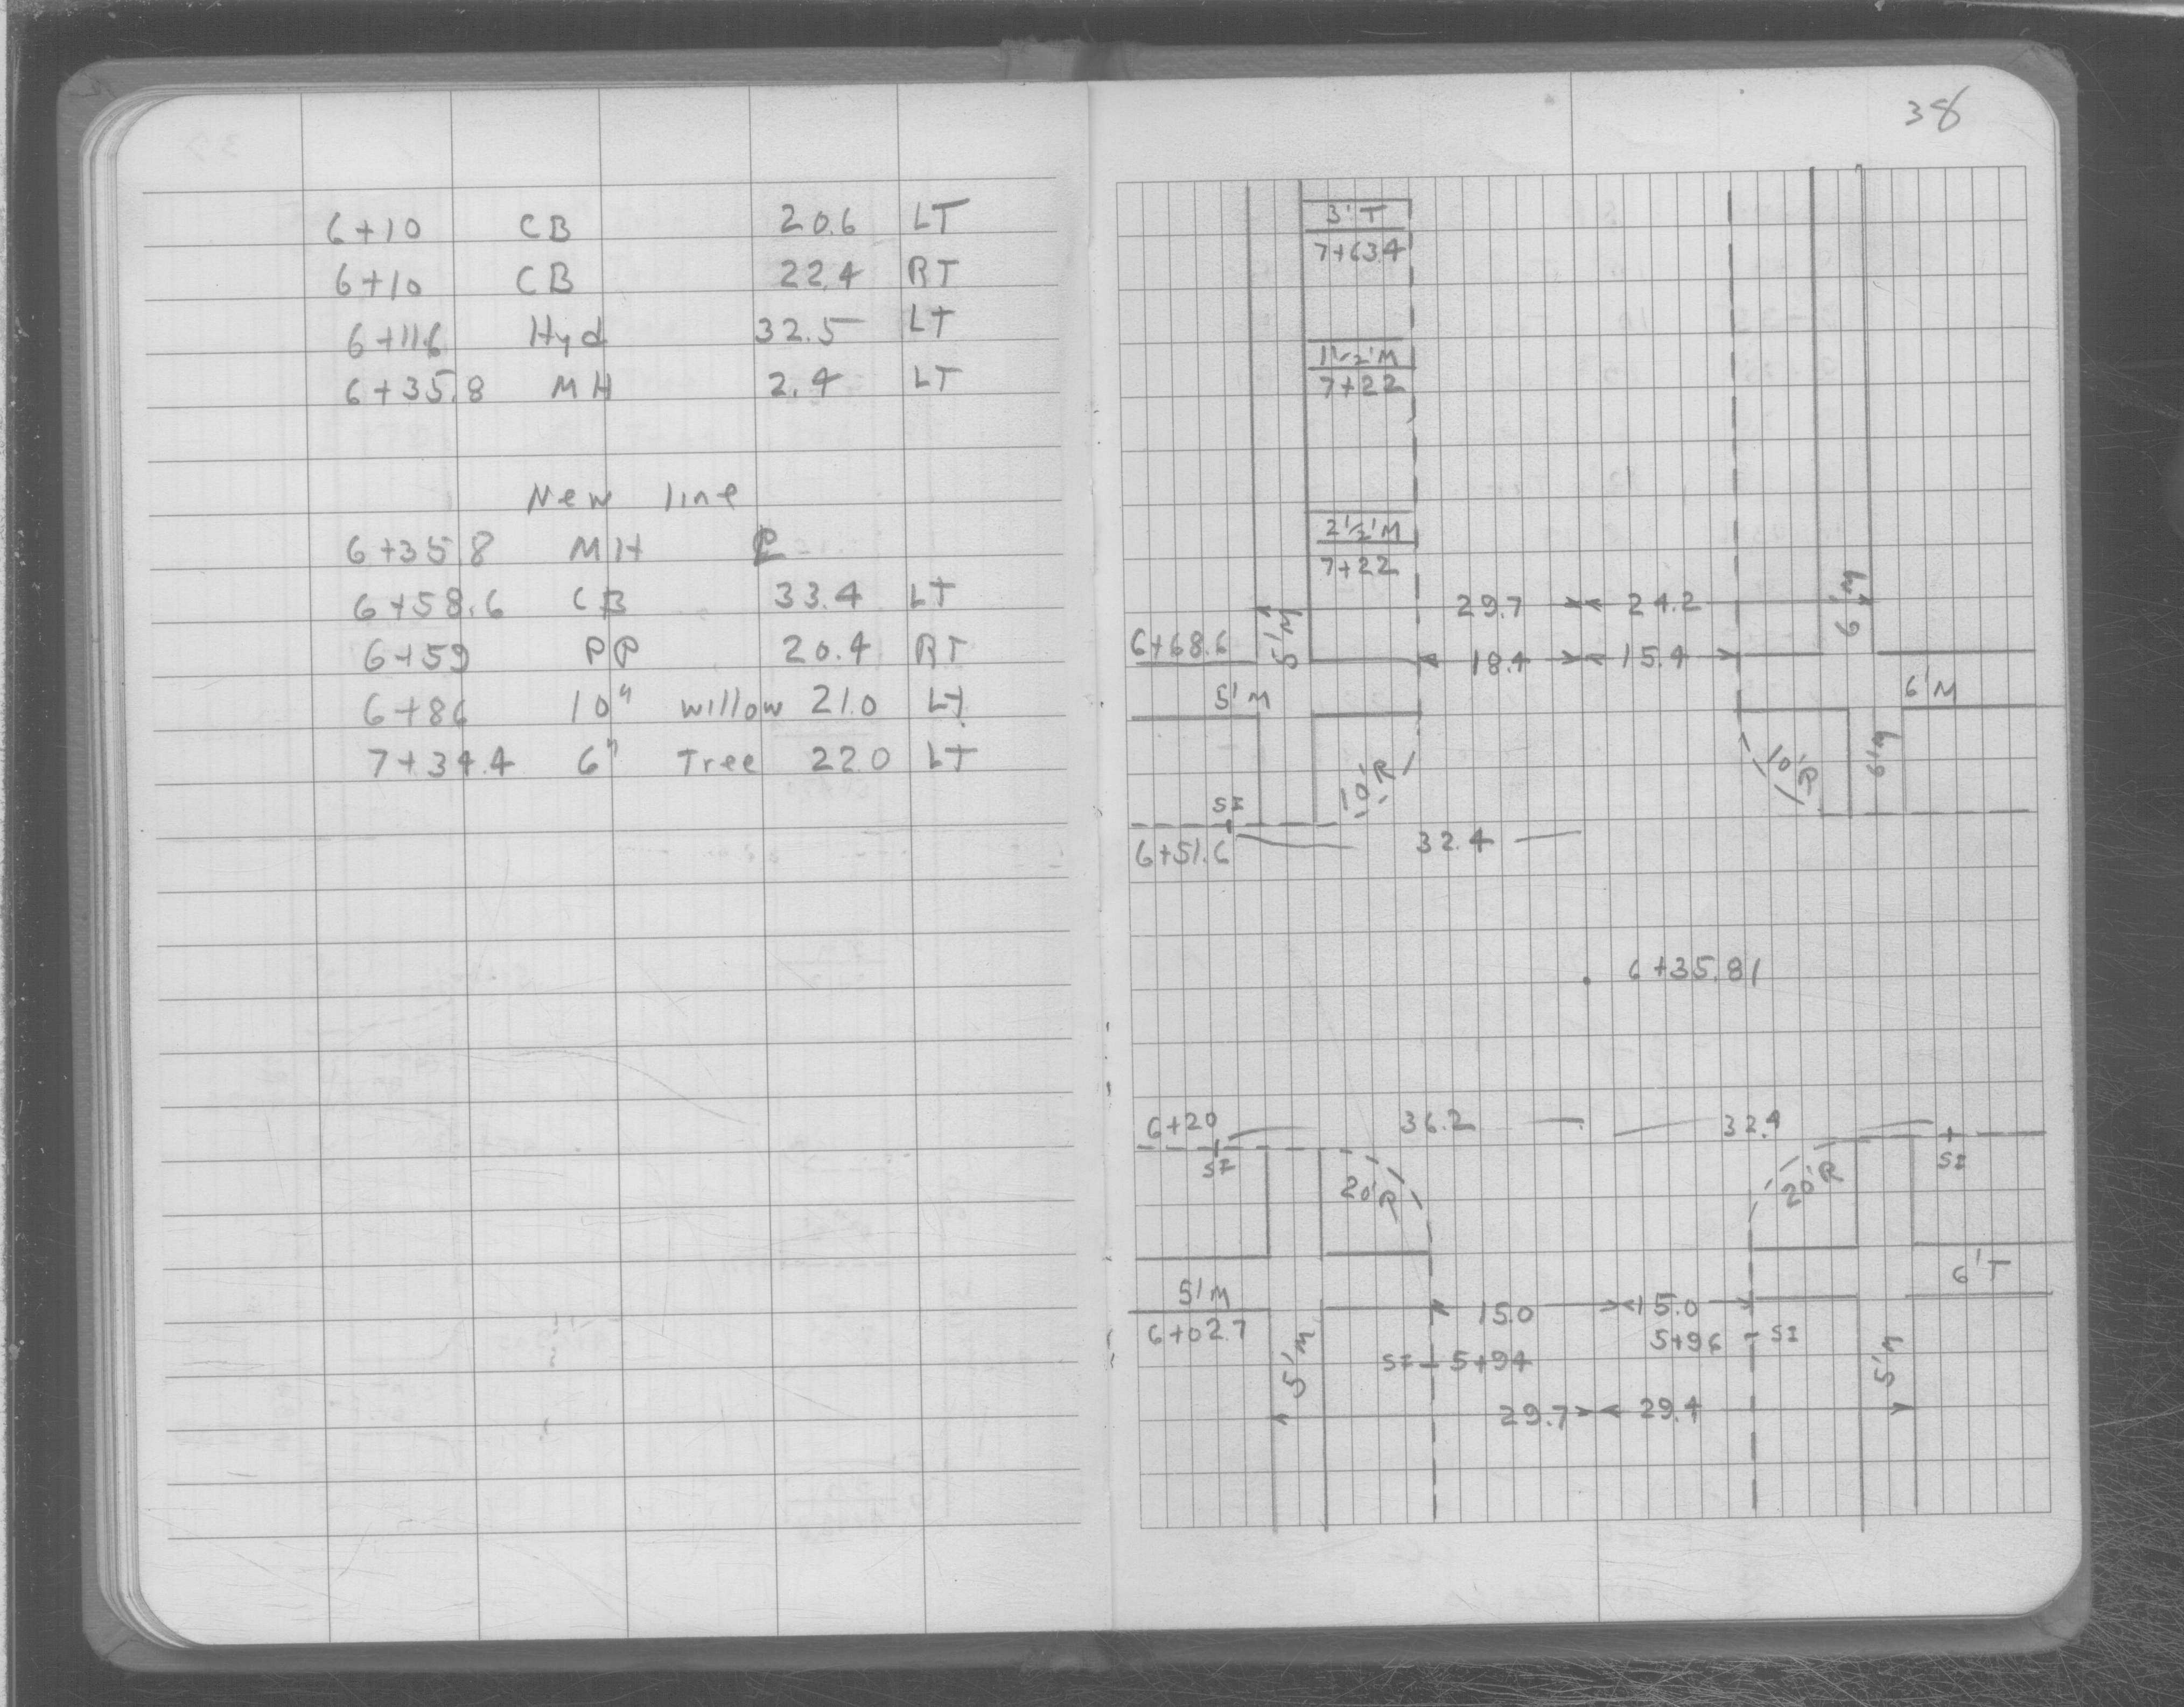 6+10 CB 20.6 LT
6+10 CB 22.4 RT
6+11.6 Hyd 32.5 LT
6+35.8 MH 2.4 LT
New line
6+35.8 MH ℄
6+58.6 CB 33.4 LT
6+59 PP 20.4 RT
6+86 10" willow 21.0 LT
7+34.4 6" Tree 22.0 LT
38
3' T
7+63.4
1 1/2' M
7+22
2 1/2' M
7+22
29.7 24.2
6' M
5' M
6+68.6
18.4 15.4
5' M
6' M
10' R
10' R
6' M
SI
6+51.6
32.4
6+35.81
6+20
36.2
32.4
SI
SI
20' R
20' R
6' T
5' M
6+02.7
15.0 15.0
5+96 SI
SI 5+94
5' M
5' M
29.7 29.4